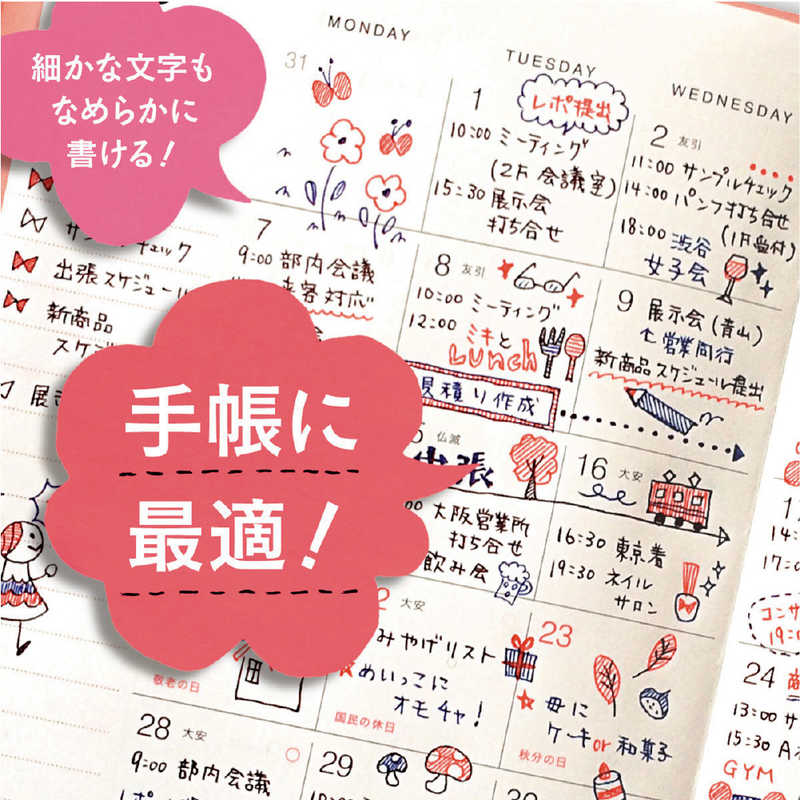 細かな文字も
なめらかに
書ける!
手帳に
最適!
MONDAY
TUESDAY
WEDNESDAY
31
1
レポ提出
10:00 ミーティング
(2F 会議室)
15:30 展示会
打ち合せ
2 友引
11:00 サンプルチェック
14:00 パンフ打ち合せ
(1F受付)
18:00 渋谷
女子会
7
9:00 部内会議
来客対応
8 友引
10:00 ミーティング
12:00 ミキと
Lunch
見積り作成
9 展示会(青山)
営業同行
新商品スケジュール提出
出張スケジュール
新商品
仏滅
出張
大阪営業所
打ち合せ
飲み会
16 大安
16:30 東京着
19:30 ネイル
サロン
大安
みやげリスト
めいっこに
オモチャ!
国民の休日
敬老の日
23
母に
ケーキor和菓子
秋分の日
24
13:00
15:30
GYM
28 大安
9:00 部内会議
29
30